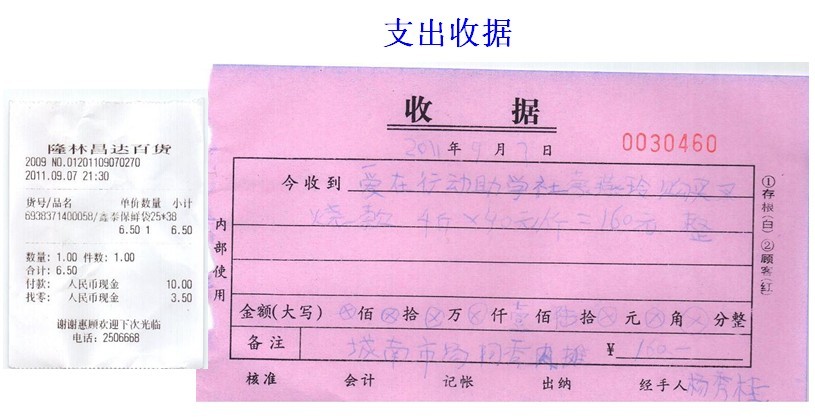 支出收据
隆林昌达百货
2009 NO.01201109070270
2011.09.07 21:30
货号/品名 单价数量 小计
6938371400058/鑫泰保鲜袋25*38
6.50 1 6.50
数量: 1.00 件数: 1.00
合计: 6.50
付款: 人民币现金 10.00
找零: 人民币现金 3.50
谢谢惠顾欢迎下次光临
电话: 2506668
收 据
2011年9月7日 0030460
今收到 爱在行动助学社 购买叉
烧款 4斤×40元/斤=160元 整
内部使用
①存根(白)②顾客(红)
金额(大写) ⊗佰⊗拾⊗万⊗仟壹佰陆拾⊗元⊗角⊗分整
备注 城南市场 ¥ 160—
核准 会计 记帐 出纳 经手人 杨秀桂